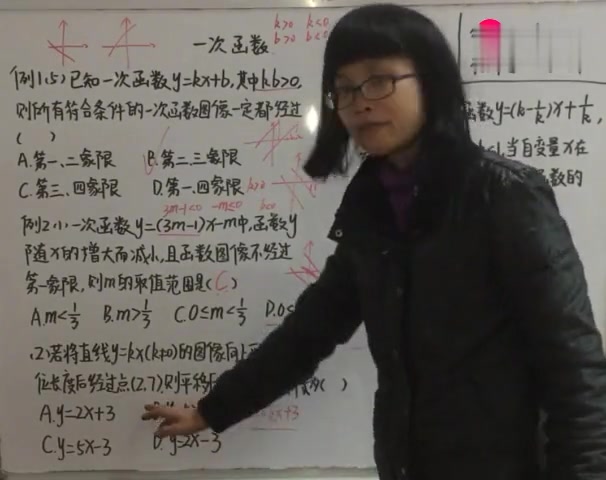 一次函数
k>0 k<0
b>0 b<0
例1.(5)已知一次函数y=kx+b,其中kb>0,
则所有符合条件的一次函数图像一定都经过
( )
A.第一、二象限 B.第二、三象限
C.第三、四象限 D.第一、四象限
b>0
b<0
3m-1<0 -m≤0
例2.(1)一次函数y=(3m-1)x-m中,函数y
随x的增大而减小,且函数图像不经过
第一象限,则m的取值范围是(C)
A.m<1/3 B.m>1/3 C.0≤m<1/3 D.0≤
(2)若将直线y=kx(k≠0)的图像向上
位长度后经过点(2,7),则平移 ( )
A.y=2x+3
x+3
C.y=5x-3 D.y=2x-3
函数y=(k-1/k)x+1/k,
<1,当自变量x在
函数的